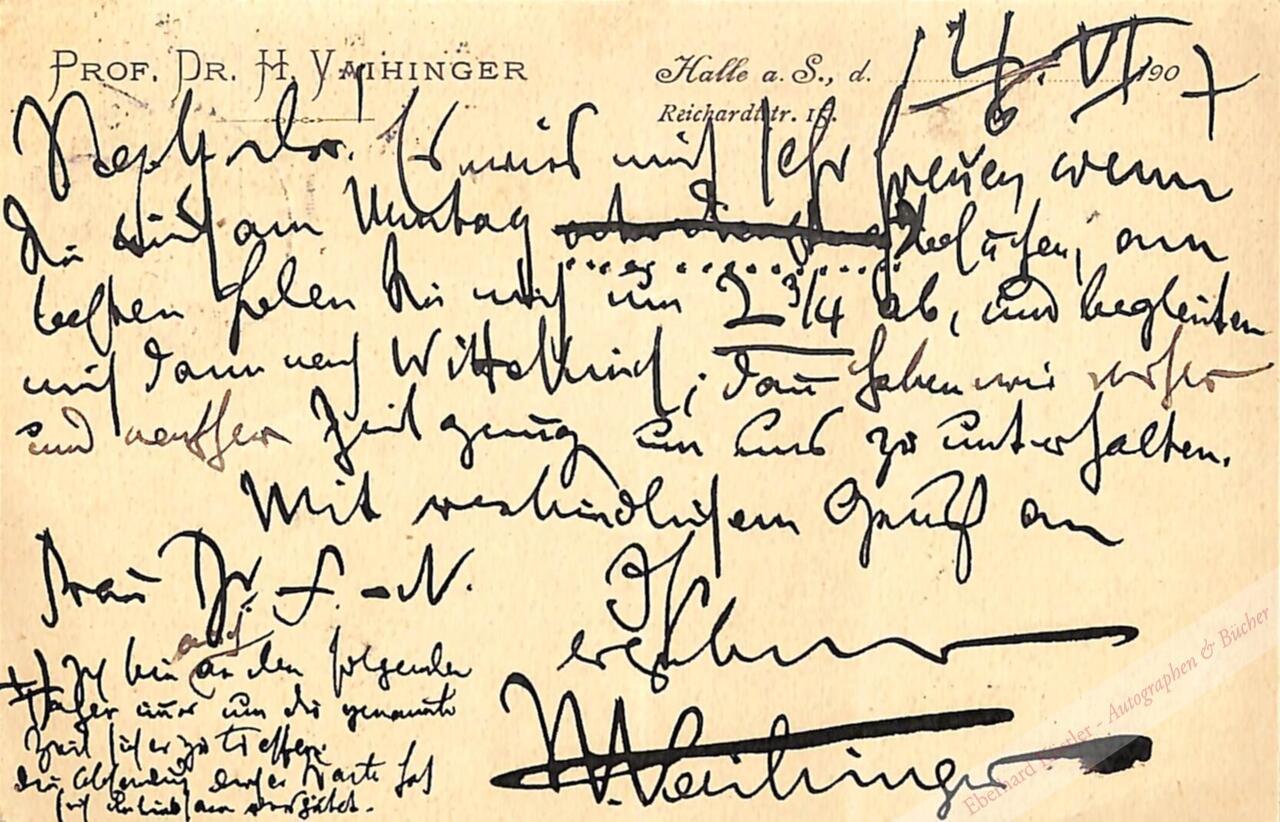 PROF. DR. H. VAIHINGER
Halle a. S., d. 14. VI 1907
Reichardtstr. 15.
Es wird mich sehr freuen wenn
Sie mich am Montag besuchen, am
besten holen Sie mich um 2 3/4 ab, und begleiten
mich dann nach Wittekind; dan haben wir vorher
und nachher Zeit genug um uns zu unterhalten.
Mit verbindlichem Gruß an
Frau Dr. F.-N. Ihr
ergebener
H. Vaihinger
+) Ich bin auch an den folgenden
Tagen immer um die genannte
Zeit sicher zu treffen.
die Absendung dieser Karte hat
sich verspätet.
Eberhard Köstler - Autographen & Bücher